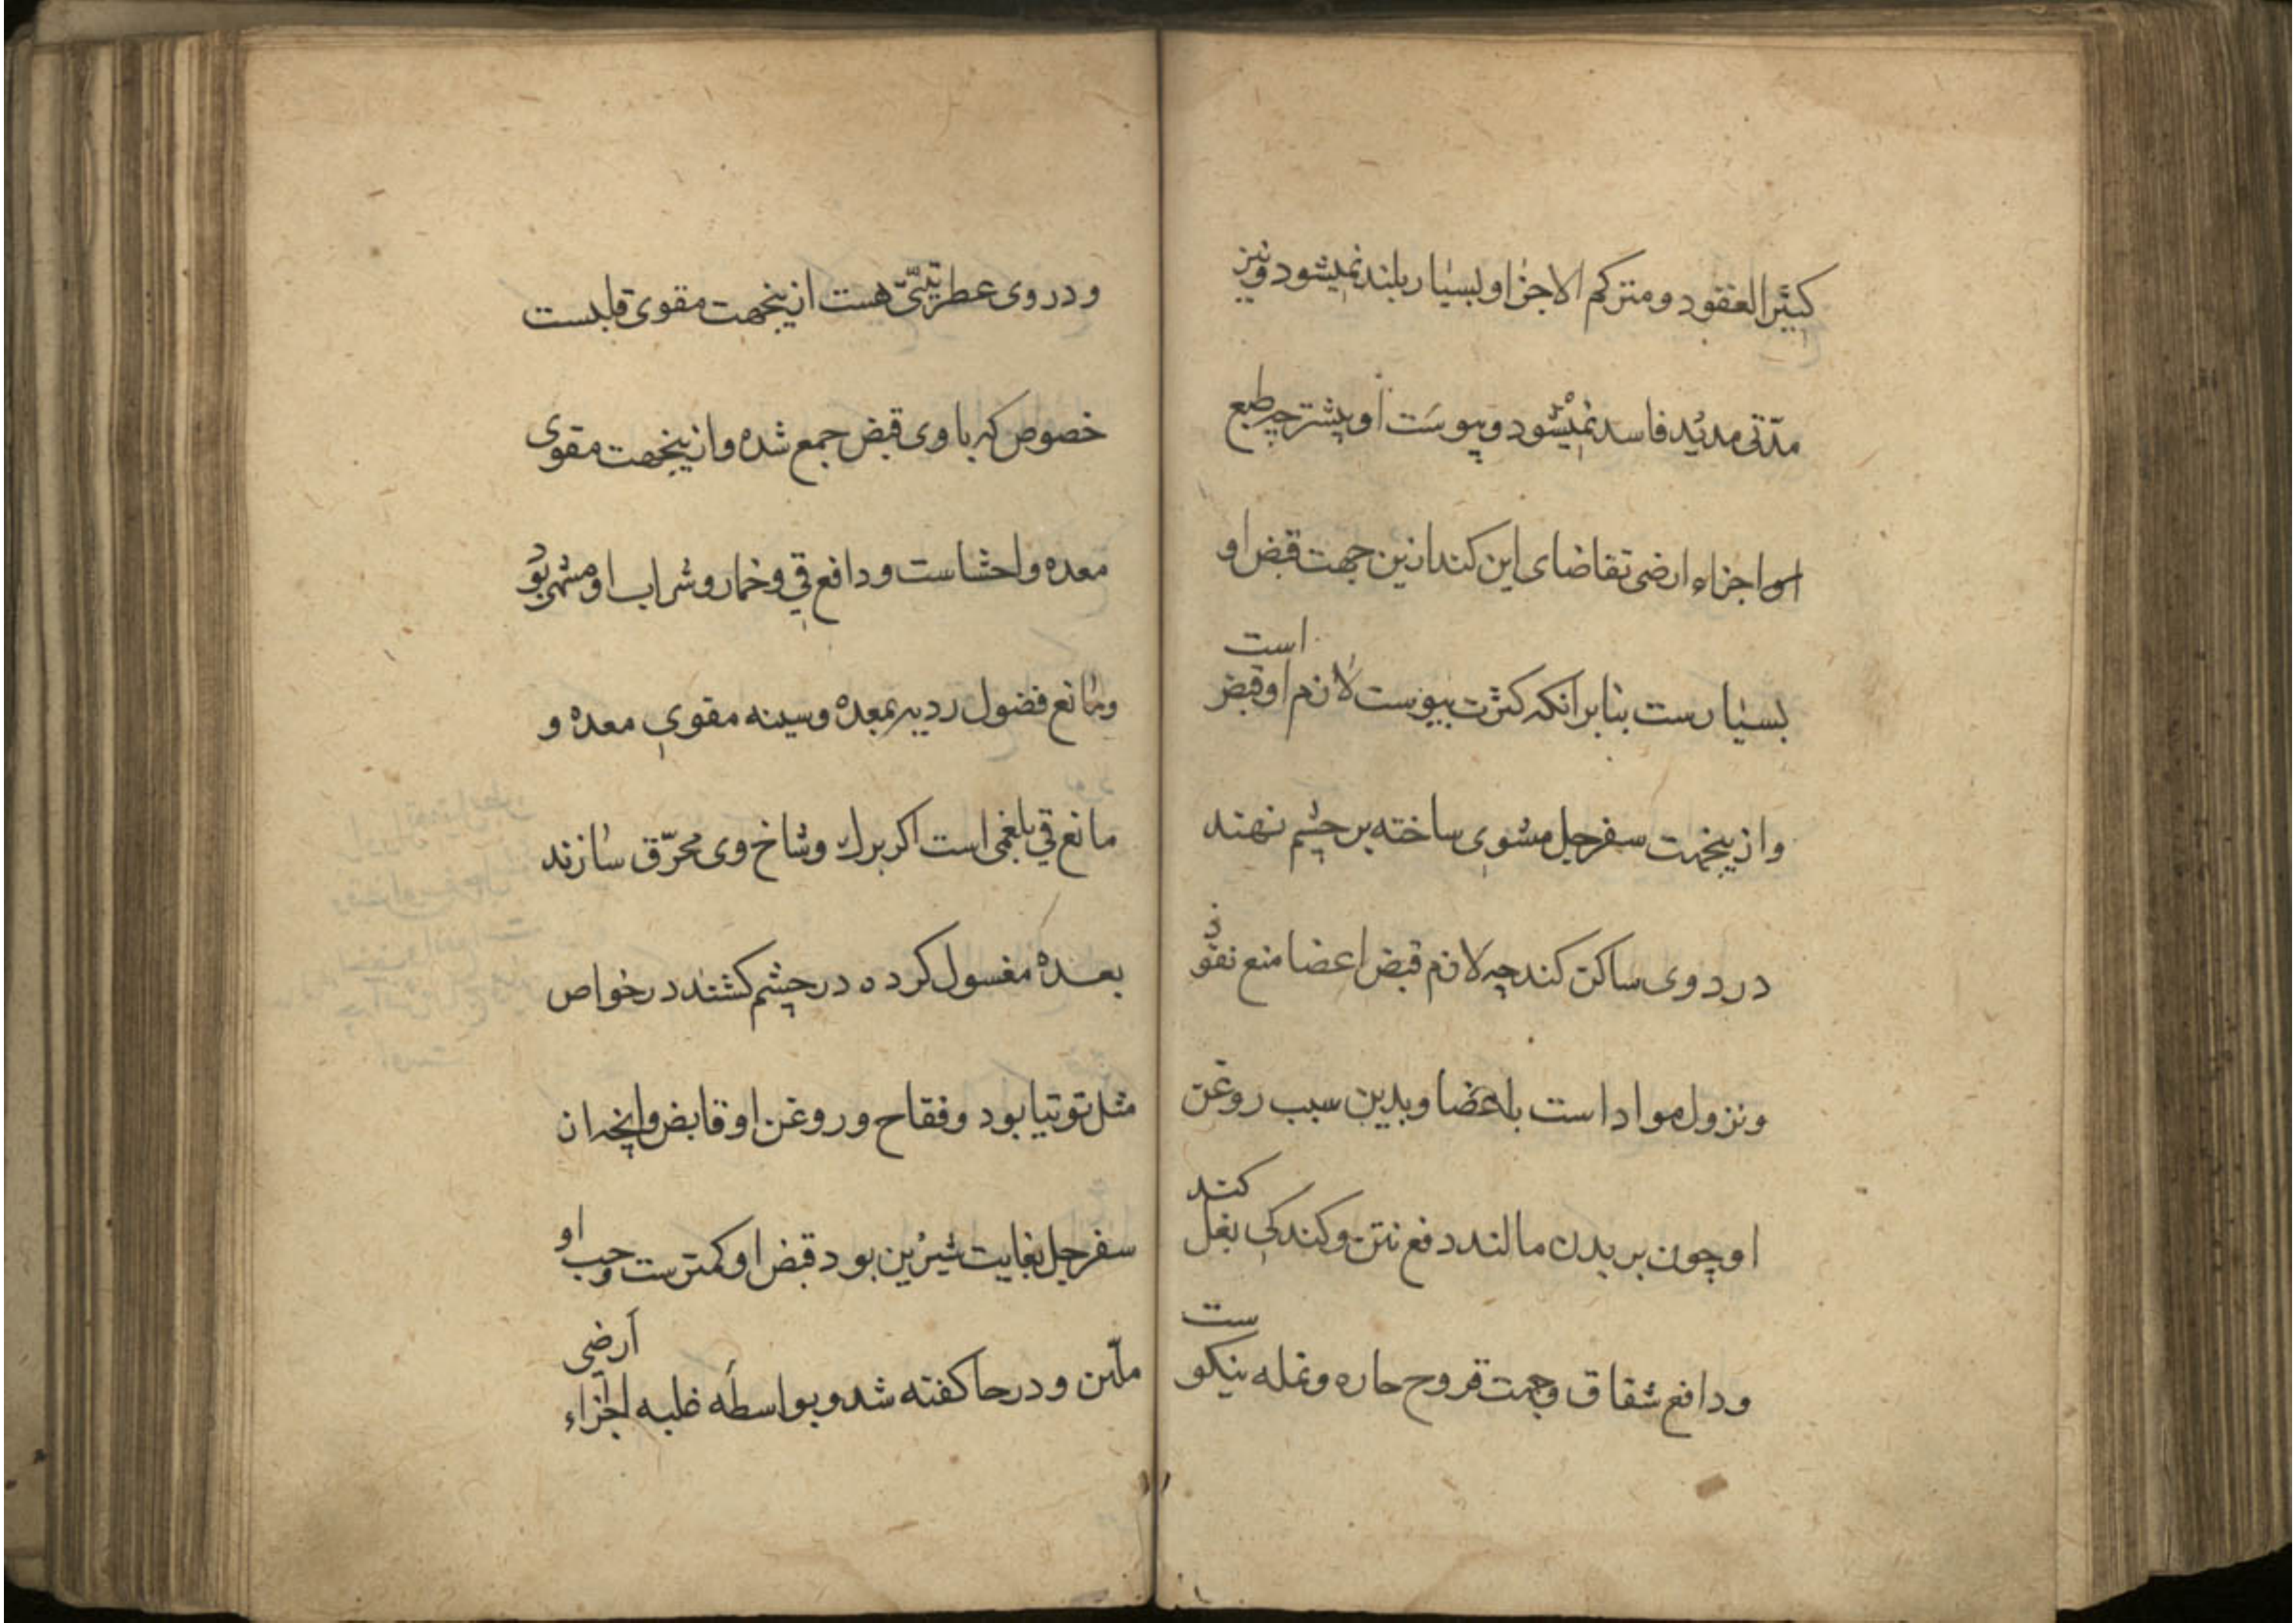 کثیر العقود و متزکم الاجزا و بسیار بلند نمیشود و نیز
مدّتی مدید فاسد نمیشود و پوست او پیشتر چه طبع
او اجزاء ارضی تقاضای این کند ازین جهت قبض او
بسیارست بنابرانکه کثرت یبوست لازم او قبض است
و ازینجهت سفرجل مشوی ساخته بر چشم نهند
درد وی ساکن کند چه لازم قبض اعضا منع نفوذ
و نزول مواد است باعضا و بدین سبب روغن
او چون بر بدن مالند دفع نتن و کندکی بغل کند
و دافع شقاق و جهت قروح حاره و نمله نیکو ست
و در وی عطریتی هست ازینجهت مقوی قلبست
خصوص که با وی قبض جمع شده و ازینجهت مقوی
معده و احشاست و دافع قی و خمار و شراب او مشهی بود
و مانع فضول ردیه بمعده و سینه مقوی معده و
مانع قی بلغمی است اکر برك و شاخ وی محرّق سازند
بعده مغسول کرده در چشم کشند در خواص
مثل توتیا بود و فقاح و روغن او قابض و انچه ان
سفرجل بغایت شیرین بود قبض او کمترست و حب او
ملین و در حا کفته شد و بواسطه غلبه اجزاء ارضی